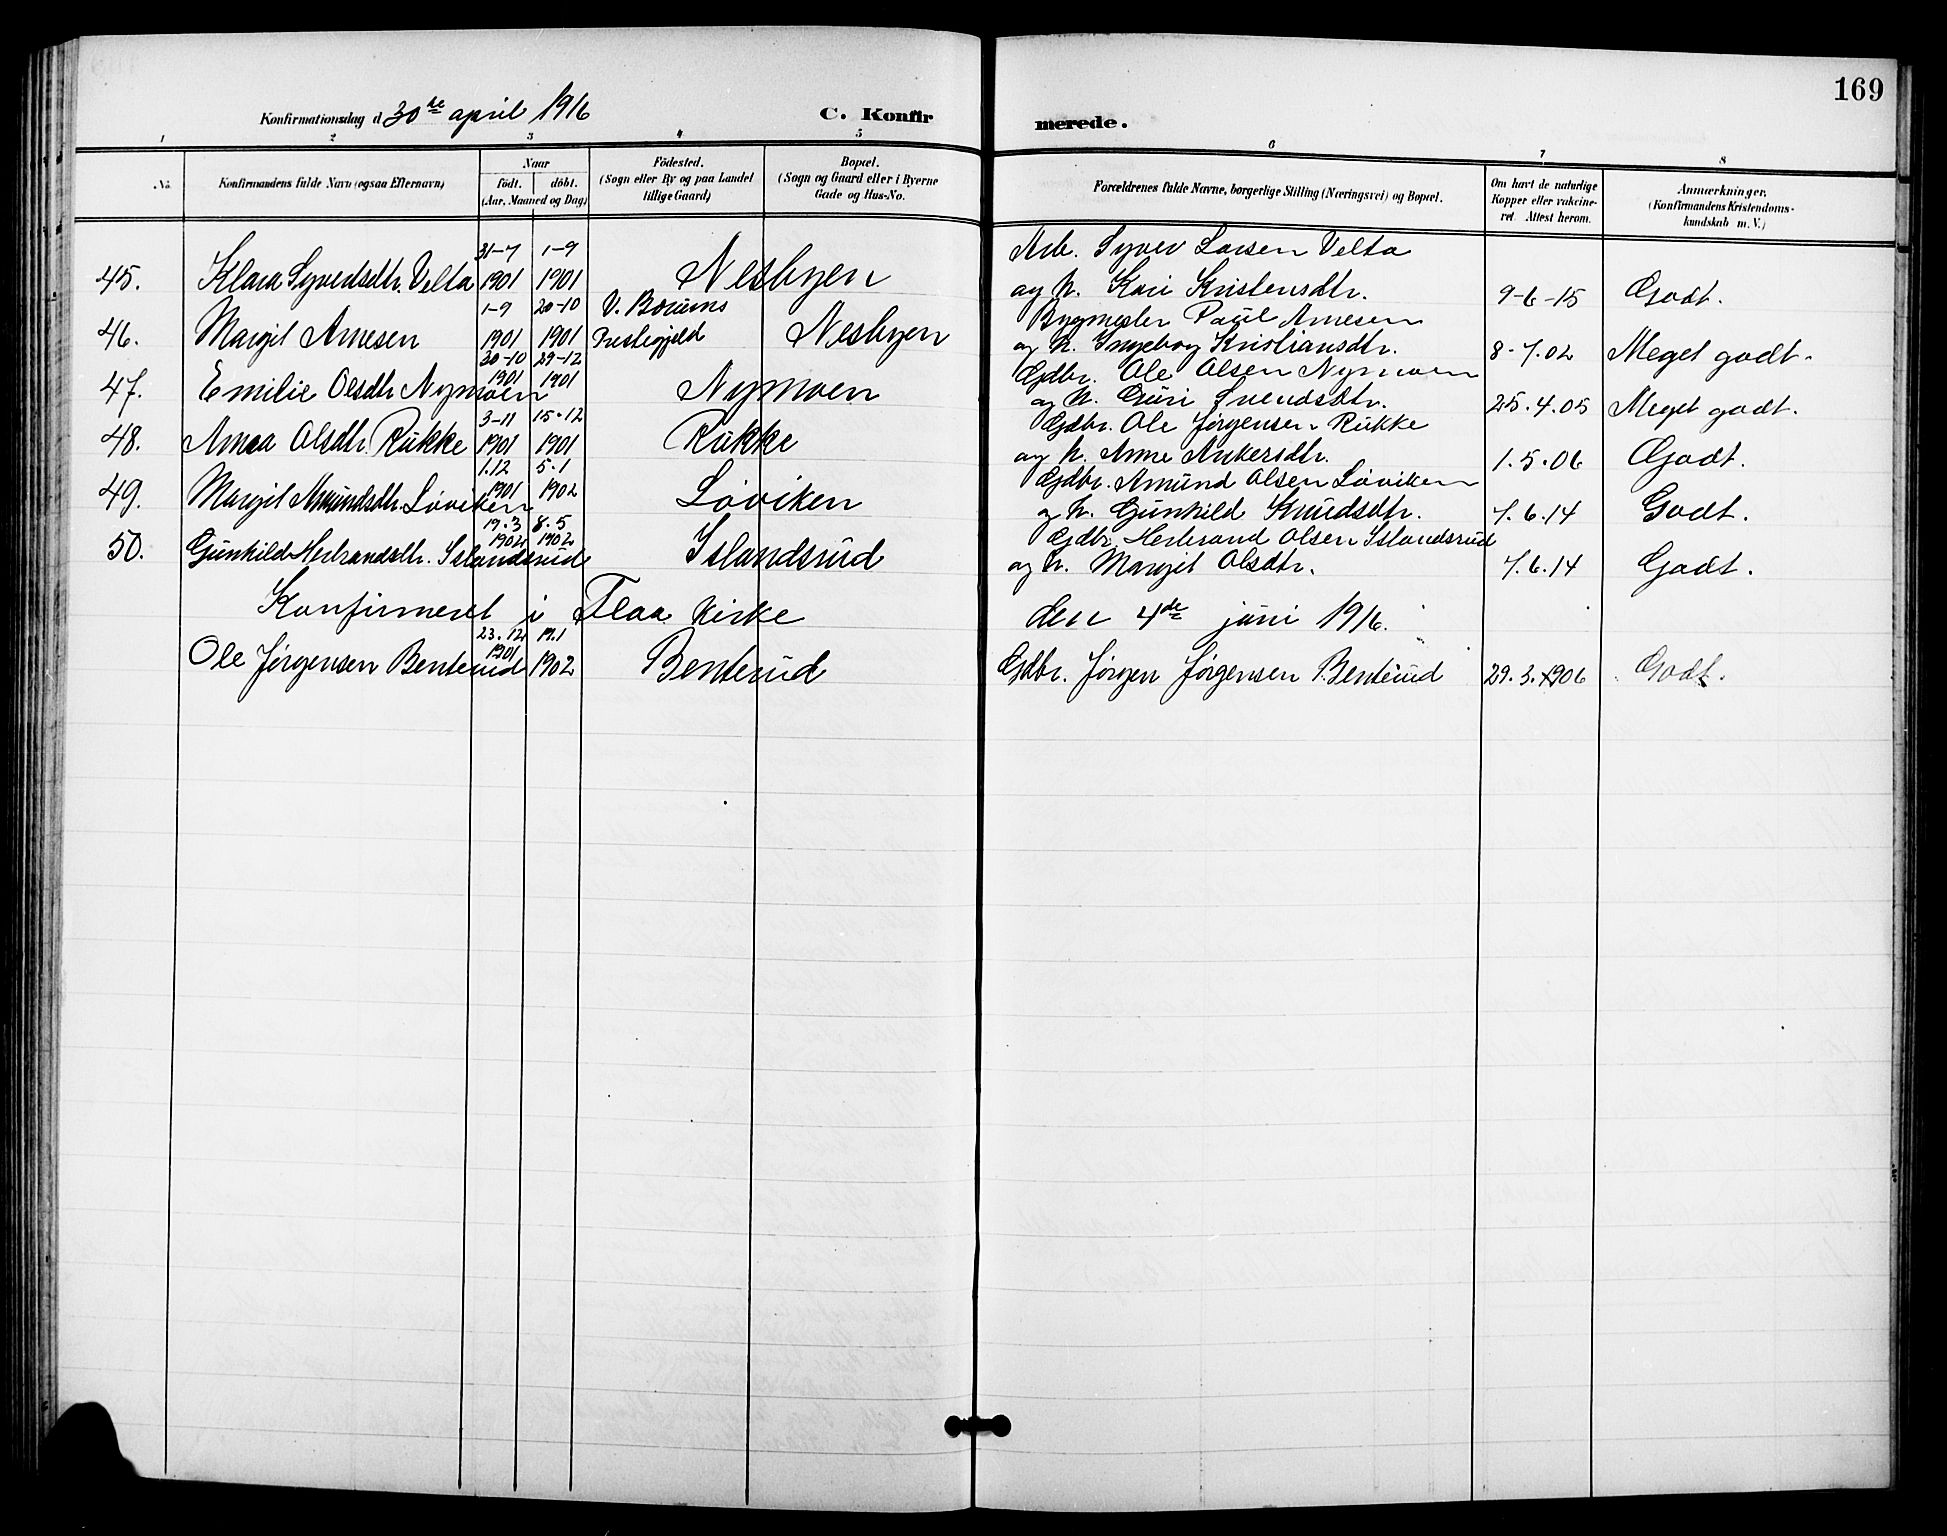 169
Konfirmationsdag d 30de april 1916 C. Konfirmerede.
1 2 3 4 5 6 7 8
No. Konfirmandens fulde Navn (ogsaa Efternavn) Naar födt. döbt. (Aar, Maaned og Dag) Födested. (Sogn eller By og paa Landet tillige Gaard) Bopæl. (Sogn og Gaard eller i Byerne Gade og Hus-No. Forældrenes fulde Navne, borgerlige Stilling (Næringsvei) og Bopæl. Om havt de naturlige Kopper eller vakcineret. Attest herom. Anmærkninger. (Konfirmandens Kristendomskundskab m. V.)
31-7 1-9 Arb. Syver Larsen Velta
45. Klara Syversdtr. Velta 1901 1901 Nesbyen og h. Kari Kristensdtr. 9-6-15 Godt.
1-9 20-10 V. Bærums Bygmester Paul Arnesen
46. Margit Arnesen 1901 1901 Prestegjeld Nesbyen og h. Ingeborg Kristiansdtr. 8-7.02 Meget godt.
30-10 29-12 Gdbr. Ole Olsen Nymoen
47. Emilie Olsdtr Nymoen 1901 1901 Nymoen og h. Guri Svendsdtr. 25.4.05 Meget godt.
3-11 15.12 Gdbr. Ole Jørgensen Rukke
48. Anna Olsdtr. Rukke 1901 1901 Rukke og h. Anne Ankersdtr. 1.5.06 Godt.
1.12 5.1 Gdbr. Amund Olsen Løviken
49. Margit Amundsdtr. Løviken 1901 1902 Løviken og h. Gunhild Knudsdtr. 7.6.14 Godt.
19.3 8.5 Gdbr. Herbrand Olsen Islandsrud
50. Gunhild Herbrandsdtr. Islandsrud 1902 1902 Islandsrud og h. Margit Olsdtr. 7.6.14 Godt.
Konfirmeret i Flaa kirke den 4de juni 1916.
23.12 19.1
Ole Jørgensen Benterud 1901 1902 Benterud Gdbr. Jørgen Jørgensen Benterud 29.3.1906 Godt.